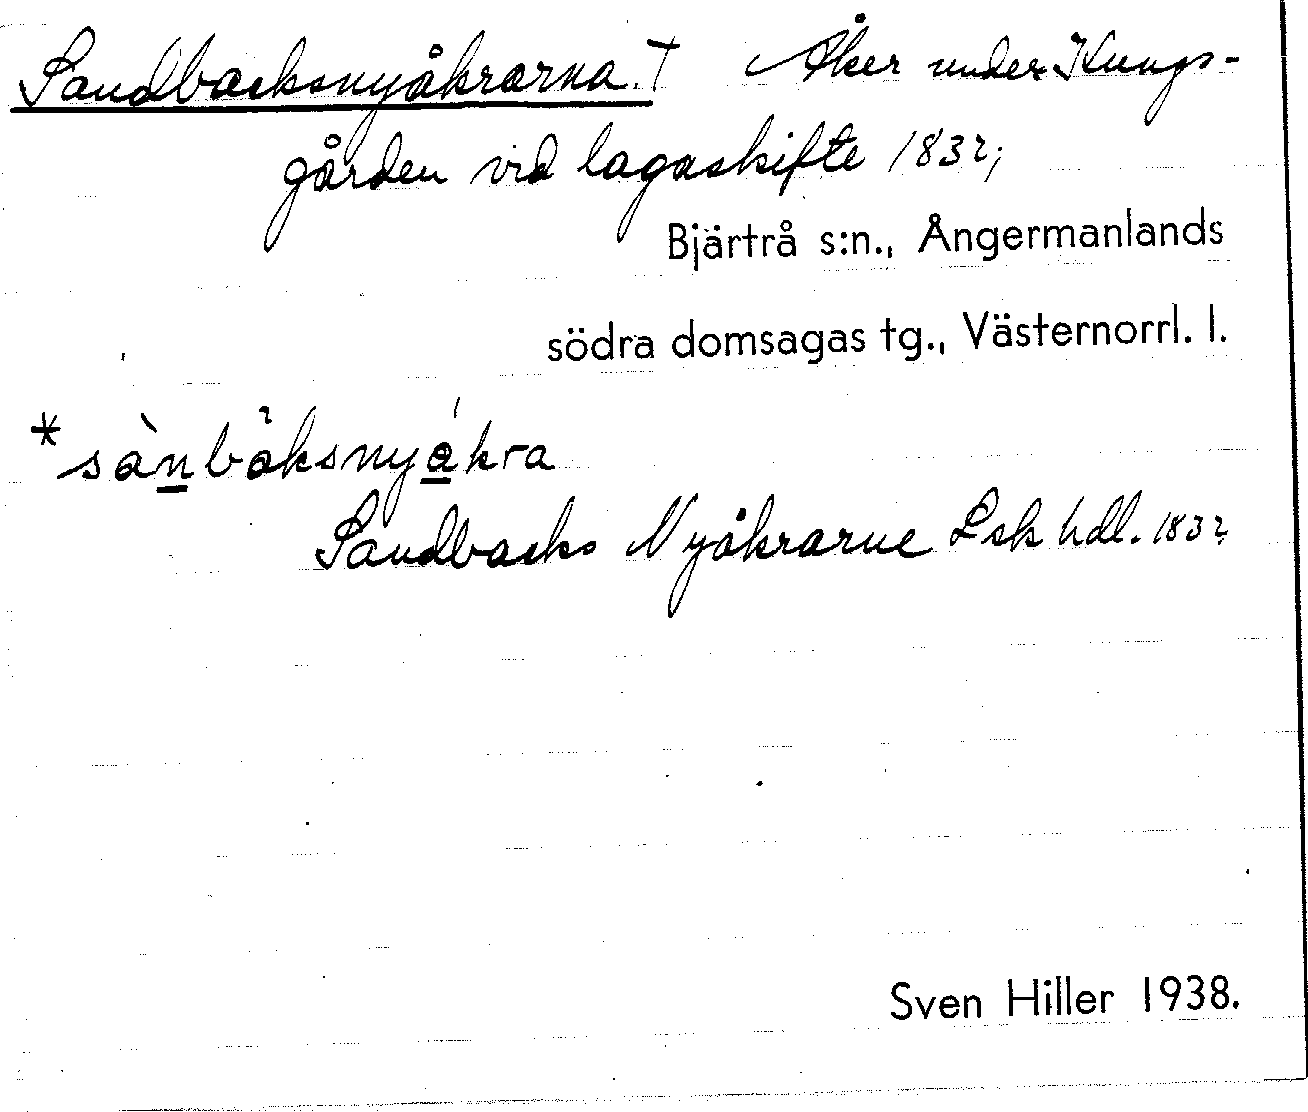 Sandbacksnyåkrarna. † Åker under Kungs-
gården vid lagaskifte 1832;
Bjärtrå s:n., Ångermanlands
södra domsagas tg., Västernorrl. l.
*sànbåksnyåkra
Sandbacks Nyåkrarne Lsk hdl. 1832
Sven Hiller 1938.